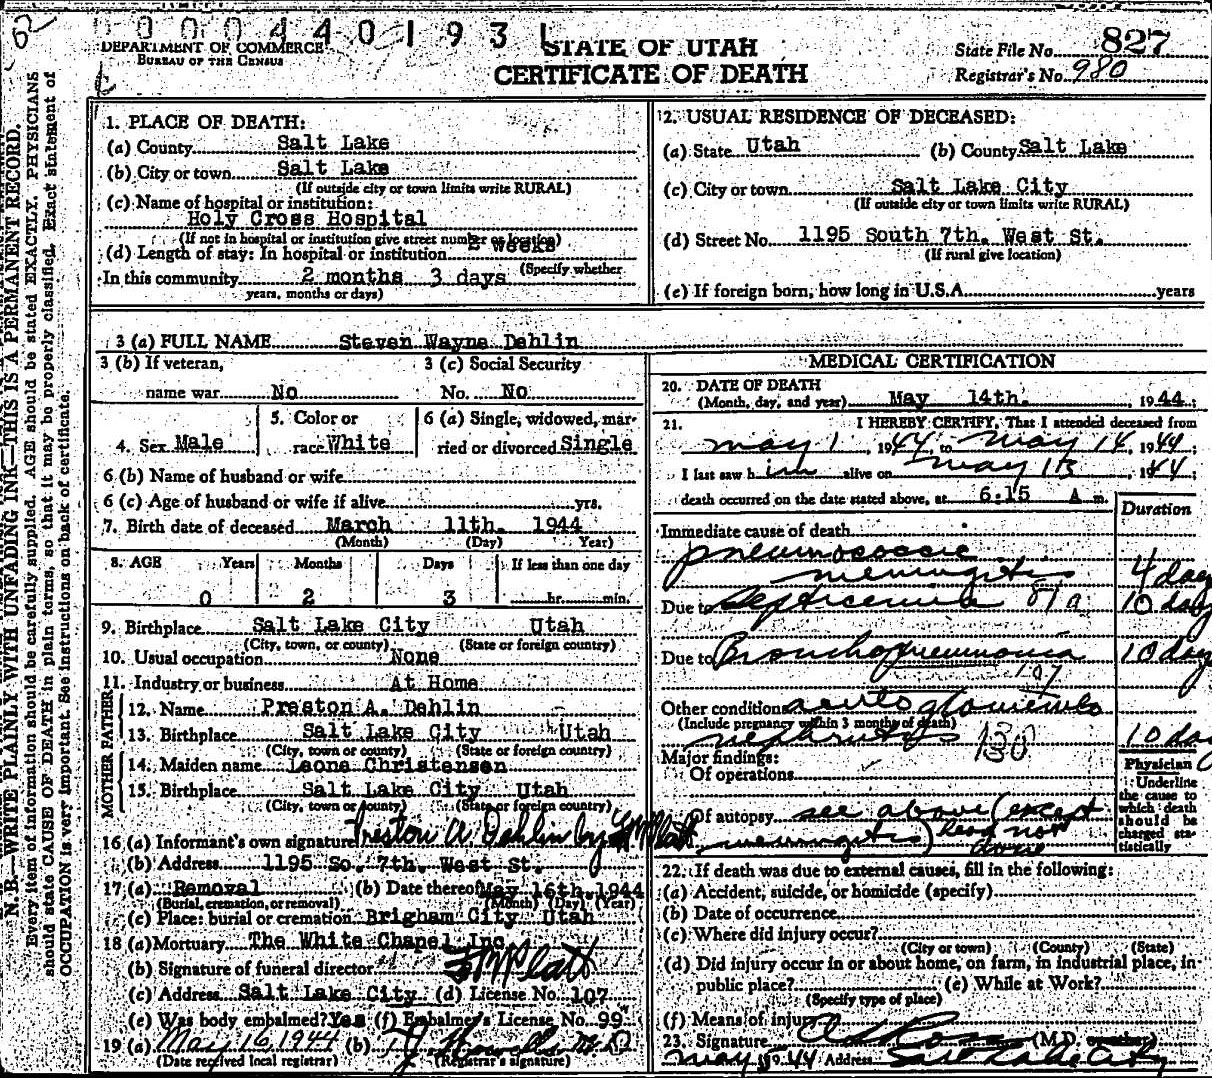 0004401931
DEPARTMENT OF COMMERCE
BUREAU OF THE CENSUS
STATE OF UTAH
CERTIFICATE OF DEATH
State File No. 827
Registrar's No. 980
N. B.—WRITE PLAINLY WITH UNFADING INK—THIS IS A PERMANENT RECORD.
Every item of information should be carefully supplied. AGE should be stated EXACTLY. PHYSICIANS
should state CAUSE OF DEATH in plain terms, so that it may be properly classified. Exact statement of
OCCUPATION is very important. See instructions on back of certificate.
1. PLACE OF DEATH:
(a) County Salt Lake
(b) City or town Salt Lake
(If outside city or town limits write RURAL)
(c) Name of hospital or institution:
Holy Cross Hospital
(If not in hospital or institution give street number or location)
(d) Length of stay: In hospital or institution 2 weeks
(Specify whether
In this community 2 months 3 days
years, months or days)
2. USUAL RESIDENCE OF DECEASED:
(a) State Utah (b) County Salt Lake
(c) City or town Salt Lake City
(If outside city or town limits write RURAL)
(d) Street No. 1195 South 7th. West St.
(If rural give location)
(e) If foreign born, how long in U.S.A. years
3 (a) FULL NAME Steven Wayne Dehlin
3 (b) If veteran, 3 (c) Social Security
name war No No. No
4. Sex Male 5. Color or race White 6 (a) Single, widowed, married or divorced Single
6 (b) Name of husband or wife
6 (c) Age of husband or wife if alive yrs.
7. Birth date of deceased March 11th. 1944
(Month) (Day) Year)
8. AGE Years Months Days If less than one day
0 2 3 hr. min.
9. Birthplace Salt Lake City Utah
(City, town, or county) (State or foreign country)
10. Usual occupation None
11. Industry or business At Home
FATHER
12. Name Preston A. Dehlin
13. Birthplace Salt Lake City Utah
(City, town or county) (State or foreign country)
MOTHER
14. Maiden name Leona Christensen
15. Birthplace Salt Lake City Utah
(City, town or county) (State or foreign country)
16 (a) Informant's own signature Preston A. Dehlin by
(b) Address 1195 So. 7th. West St.
17 (a) Removal (b) Date thereof May 16th. 1944
(Burial, cremation, or removal) (Month) (Day) (Year)
(c) Place: burial or cremation Brigham City Utah
18 (a) Mortuary The White Chapel Inc
(b) Signature of funeral director
(c) Address Salt Lake City (d) License No. 107
(e) Was body embalmed? Yes (f) Embalmer's License No. 99
19 (a) May 16, 1944 (b) M.D.
(Date received local registrar) (Registrar's signature)
MEDICAL CERTIFICATION
20. DATE OF DEATH
(Month, day, and year) May 14th. , 1944;
21. I HEREBY CERTIFY, That I attended deceased from
May 1, 1944 to May 14, 1944;
I last saw him alive on May 13, 1944;
death occurred on the date stated above, at 6:15 A m.
Duration
Immediate cause of death
pneumococcic
meningitis 4 days
Due to Septicemia 81a 10 days
Due to Bronchopneumonia 10 days
107
Other conditions acute glomerulo
(Include pregnancy within 3 months of death)
nephritis 130 10 days
Major findings:
Of operations
Of autopsy see above (except
meningitis) head not
done
Physician
Underline
the cause to
which death
should be
charged statistically
22. If death was due to external causes, fill in the following:
(a) Accident, suicide, or homicide (specify)
(b) Date of occurrence
(c) Where did injury occur?
(City or town) (County) (State)
(d) Did injury occur in or about home, on farm, in industrial place, in
public place? (e) While at Work?
(Specify type of place)
(f) Means of injury
23. Signature (M.D. or other)
May 1944 Address Salt Lake City